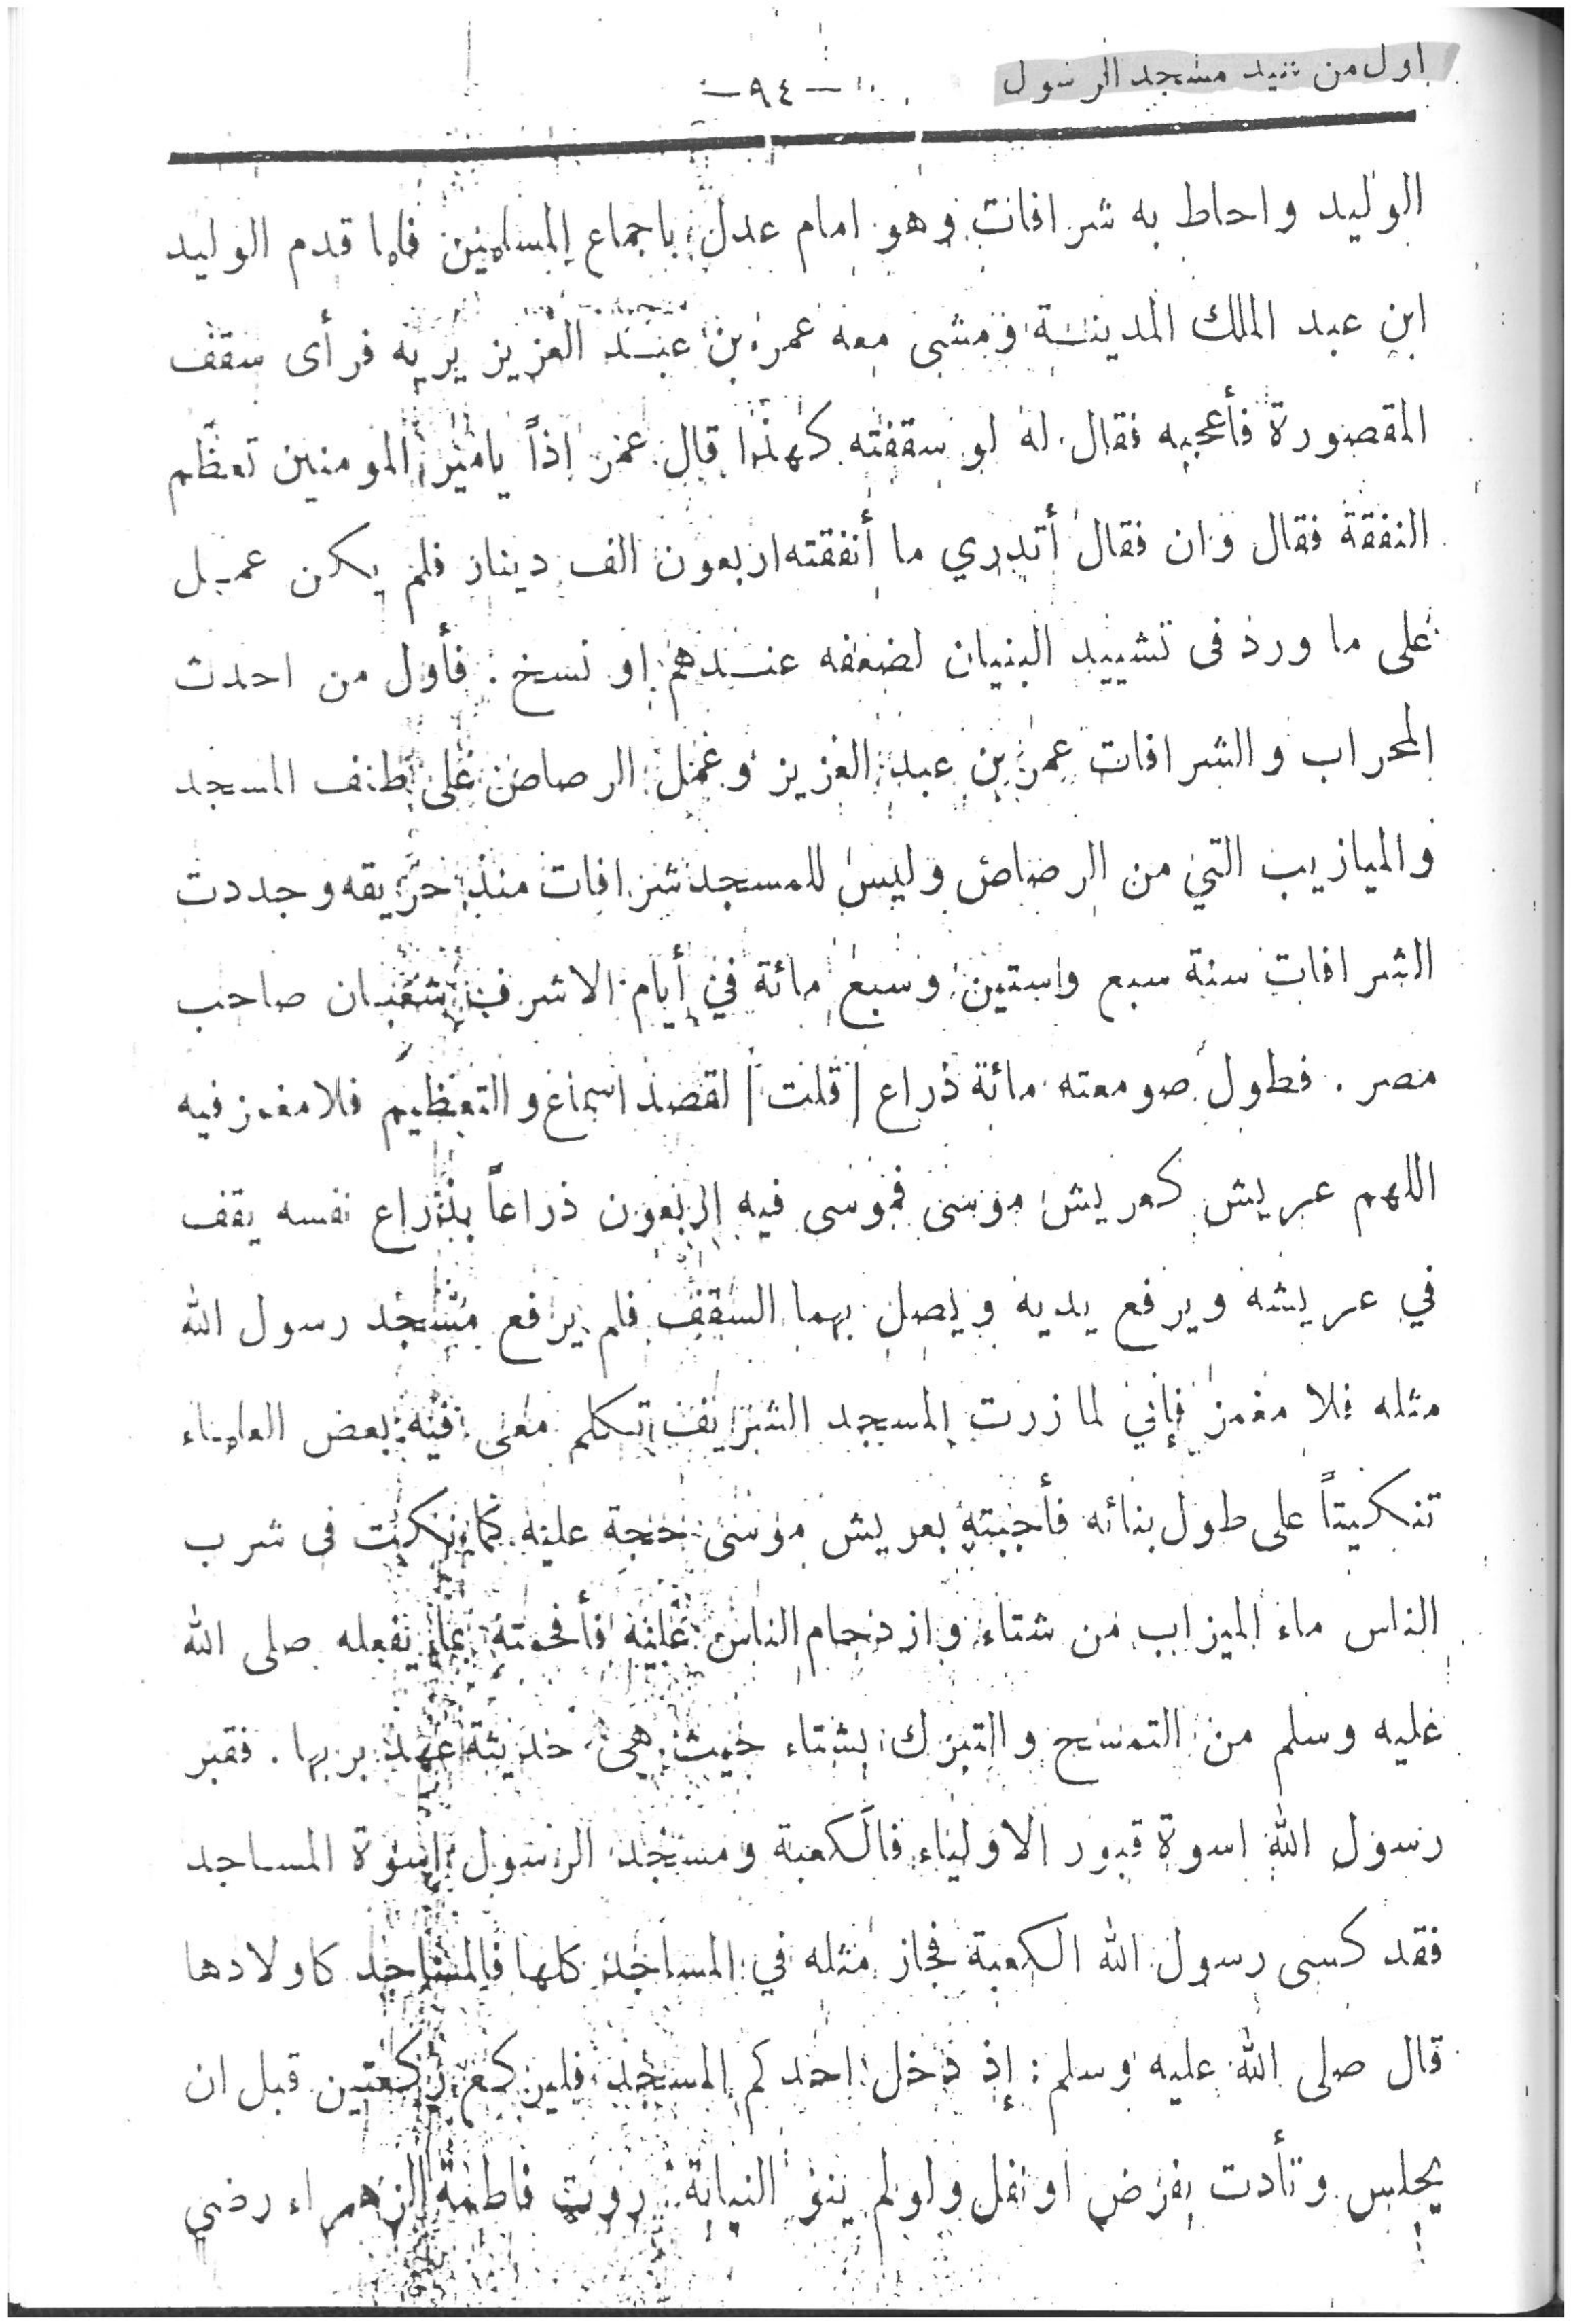 اول من شيد مسجد الرسول
— ٩٤ —
الوليد واحاط به شرافات وهو امام عدل باجماع المسلمين فلما قدم الوليد
ابن عبد الملك المدينة ومشى معه عمر بن عبد العزيز يريه فرأى سقف
المقصورة فأعجبه فقال له لو سقفته كهذا قال عمر اذاً يامير المومنين تعظم
النفقة فقال وان فقال أتدري ما أنفقته اربعون الف دينار فلم يكن عمل
على ما ورد فى تشييد البنيان لضعفه عندهم او نسخ . فأول من احدث
المحراب والشرافات عمر بن عبد العزيز وعمل الرصاص على طنف المسجد
والميازيب التي من الرصاص وليس للمسجد شرافات منذ حريقه وجددت
الشرافات سنة سبع وستين وسبع مائة في أيام الاشرف شعبان صاحب
مصر . فطول صومعته مائة ذراع / قلت / لقصد اسماع والتعظيم فلا مغمز فيه
اللهم عريش كعريش موسى فموسى فيه اربعون ذراعاً بذراع نفسه يقف
في عريشه ويرفع يديه ويصل بهما السقف فلم يرفع مسجد رسول الله
مثله فلا مغمز فإني لما زرت المسجد الشريف تكلم معى فيه بعض العلماء
تنكيتاً على طول بنائه فأجبته بعريش موسى حجة عليه كما نكيت فى شرب
الناس ماء الميزاب من شتاء وازدحام الناس عليه فأفحمته بما يفعله صلى الله
عليه وسلم من التمسح والتبرك بشتاء حيث هى حديثة عهد بربها . فقبر
رسول الله اسوة قبور الاولياء فالكعبة ومسجد الرسول اسوة المساجد
فقد كسى رسول الله الكعبة فجاز مثله في المساجد كلها فالمساجد كاولادها
قال صلى الله عليه وسلم : إذ دخل احدكم المسجد فليركع ركعتين قبل ان
يجلس وتأدت بفرض او نفل ولو لم ينو النيابة . روت فاطمة الزهراء رضي